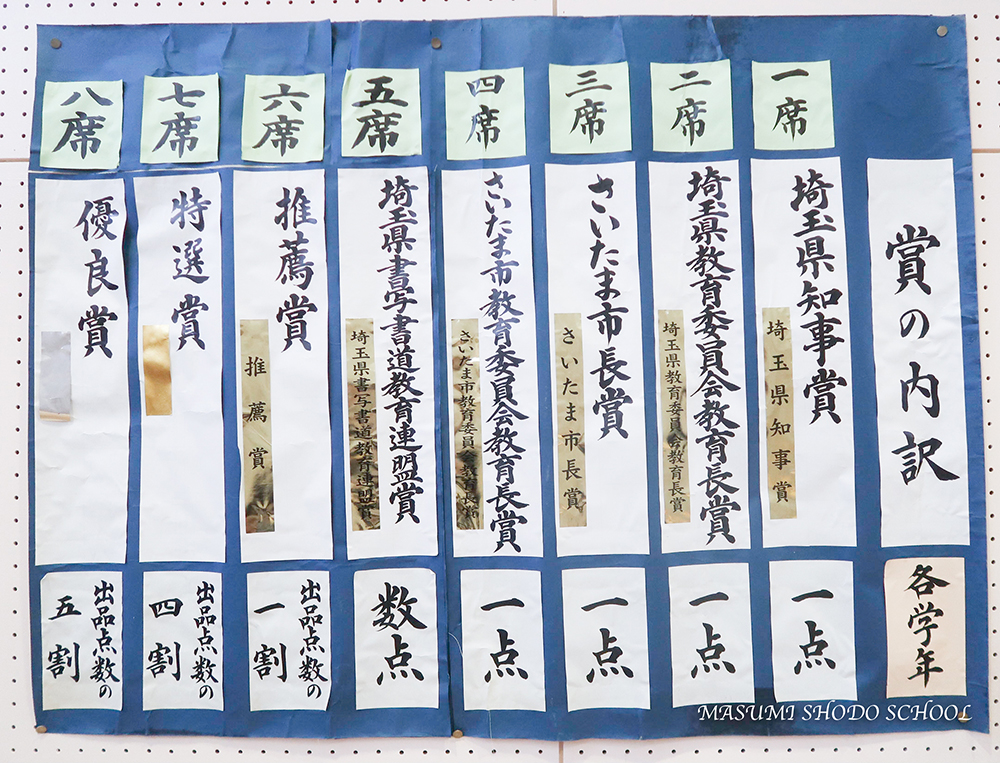 賞の内訳
各学年
一席
埼玉県知事賞
埼玉県知事賞
一点
二席
埼玉県教育委員会教育長賞
埼玉県教育委員会教育長賞
一点
三席
さいたま市長賞
さいたま市長賞
一点
四席
さいたま市教育委員会教育長賞
さいたま市教育委員会教育長賞
一点
五席
埼玉県書写書道教育連盟賞
埼玉県書写書道教育連盟賞
数点
六席
推薦賞
推薦賞
出品点数の
一割
七席
特選賞
出品点数の
四割
八席
優良賞
出品点数の
五割
MASUMI SHODO SCHOOL